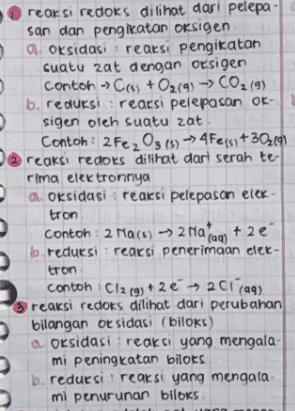 ① reaksi redoks dilihat dari pelepa-
san dan pengikatan oksigen
a. oksidasi : reaksi pengikatan
suatu zat dengan oksigen
Contoh → C(s) + O₂(g) → CO₂(g)
b. reduksi : reaksi pelepasan ok-
sigen oleh suatu zat.
Contoh : 2Fe₂O₃(s) → 4Fe(s) + 3O₂(g)
② reaksi redoks dilihat dari serah te-
rima elektronnya
a. oksidasi : reaksi pelepasan elek-
tron
contoh : 2 Na(s) → 2 Na⁺(aq) + 2 e⁻
b. reduksi : reaksi penerimaan elek-
tron
contoh : Cl₂(g) + 2 e⁻ → 2 Cl⁻(aq)
③ reaksi redoks dilihat dari perubahan
bilangan oksidasi (biloks)
a. oksidasi : reaksi yang mengala-
mi peningkatan biloks
b. reduksi : reaksi yang mengala-
mi penurunan biloks